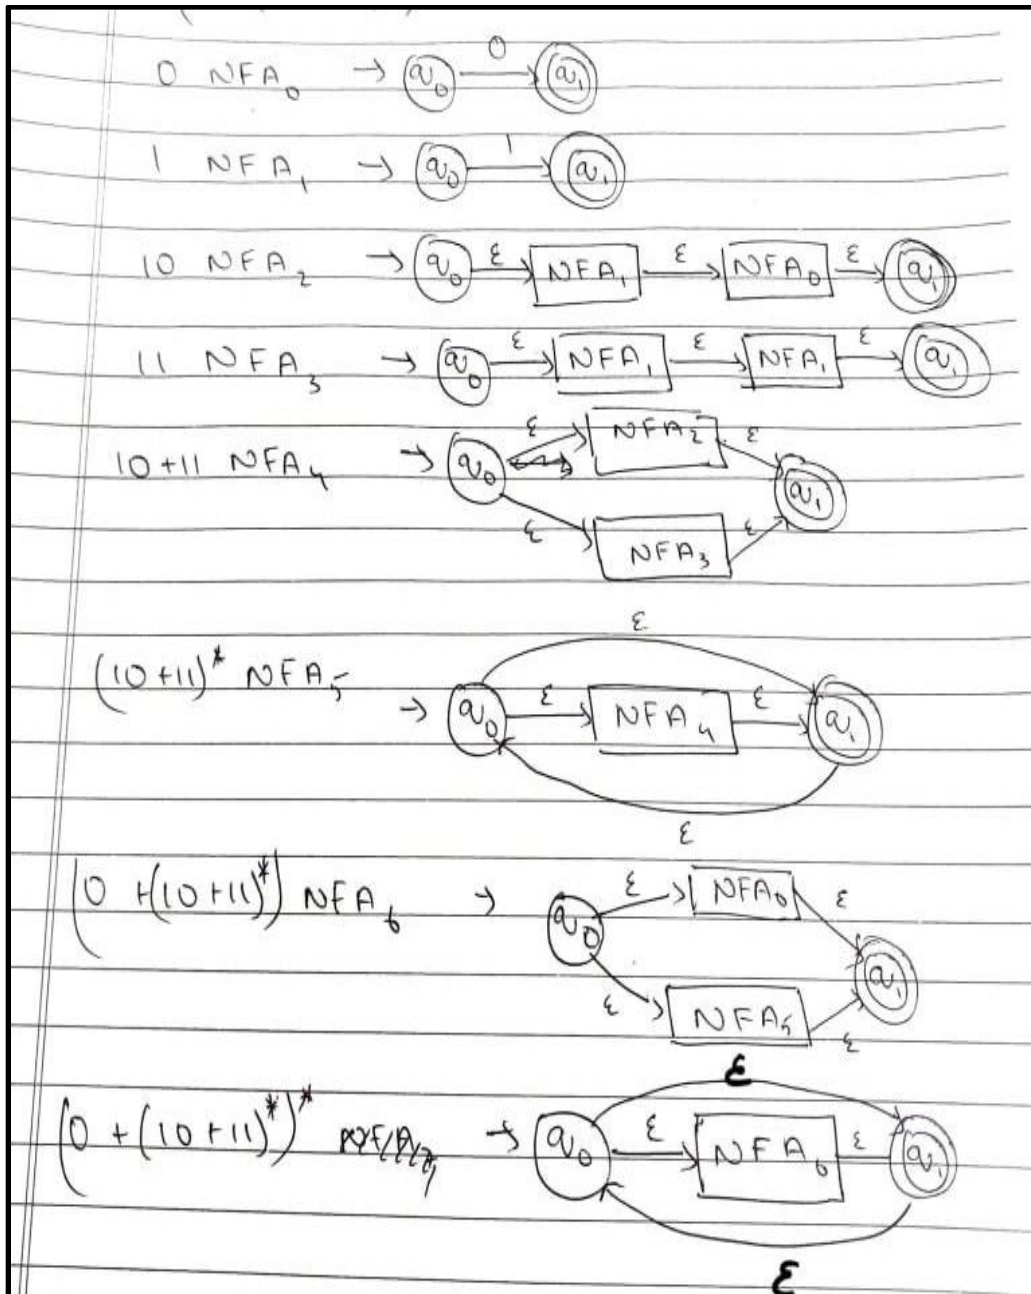 0 NFA₀ → q₀ 0 q₁
1 NFA₁ → q₀ 1 q₁
10 NFA₂ → q₀ ε NFA₁ ε NFA₀ ε q₁
11 NFA₃ → q₀ ε NFA₁ ε NFA₁ ε q₁
10+11 NFA₄ → q₀ ε NFA₂ ε q₁
ε NFA₃ ε
ε
(10+11)* NFA₅ → q₀ ε NFA₄ ε q₁
ε
(0 + (10+11)*) NFA₆ → q₀ ε NFA₀ ε q₁
ε NFA₅ ε
ε
(0 + (10+11)*)* → q₀ ε NFA₆ ε q₁
ε